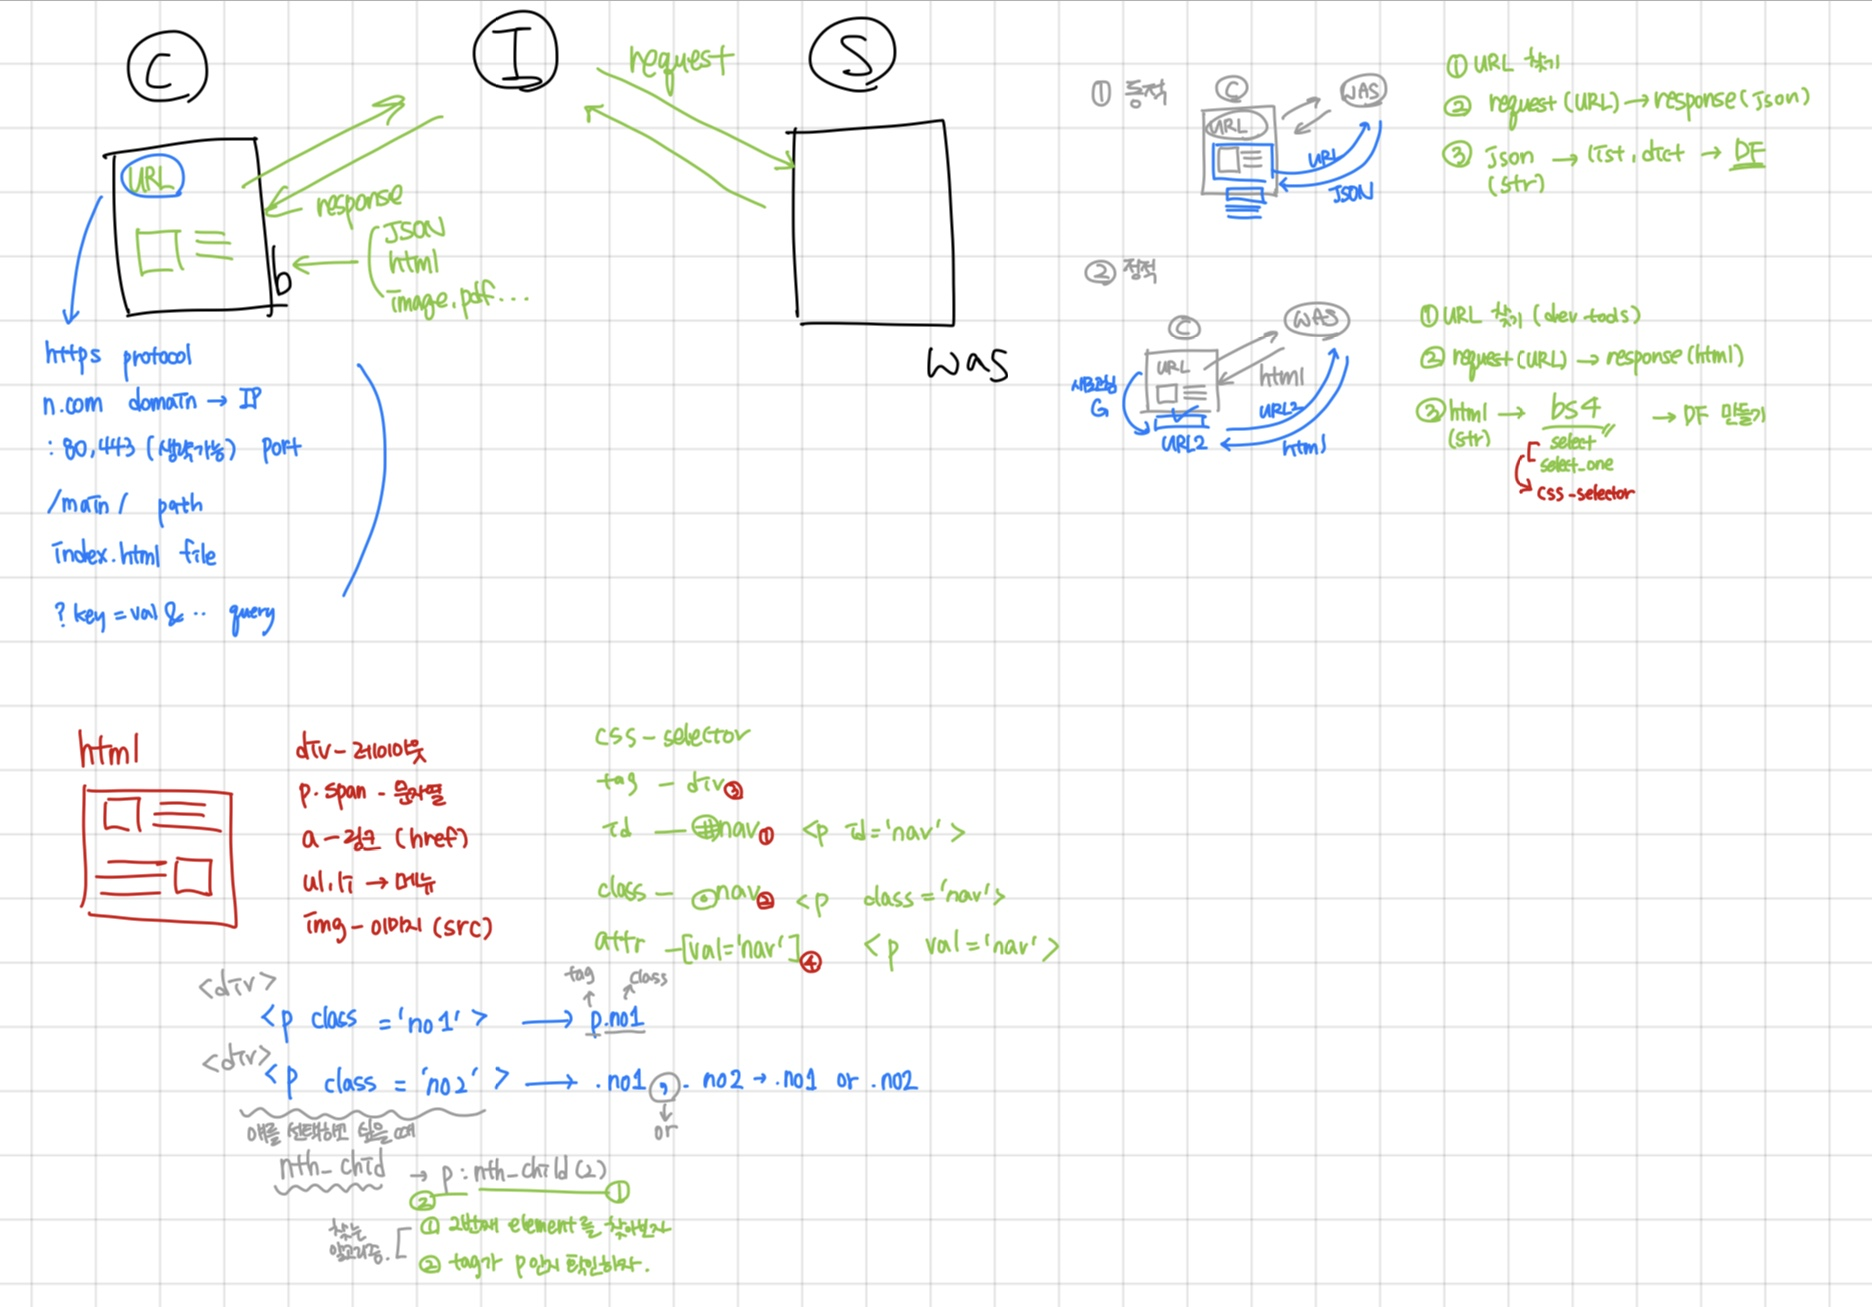 C
I
S
request
URL
response
b
JSON
html
image.pdf...
was
https protocol
n.com domain → IP
: 80,443 (생략가능) port
/main/ path
index.html file
? key = val & ·· query
① 동적
C
WAS
URL
URL
JSON
① URL 찾기
② request (URL) → response (Json)
③ Json → list, dict → DF
(str)
② 정적
C
WAS
URL
html
G
URL2
URL2
html
① URL 찾기 (dev tools)
② request (URL) → response (html)
③ html → bs4 → DF 만들기
(str)
select
select_one
css-selector
html
div - 레이아웃
p.span - 문자열
a - 링크 (href)
ul.li → 메뉴
img - 이미지 (src)
css - selector
tag - div ③
id — #nav ① <p id='nav'>
class - .nav ② <p class='nav'>
attr - [val='nav'] ④ <p val='nav'>
tag class
<div>
<p class = 'no1'> → p.no1
<div>
<p class = 'no2'> → .no1 , . no2 → .no1 or .no2
or
얘를 선택하고 싶을 때
nth_chid → p : nth_child (2)
② ①
찾는
알고리즘.
① 2번째 element를 찾아보자
② tag가 p인지 확인하자.